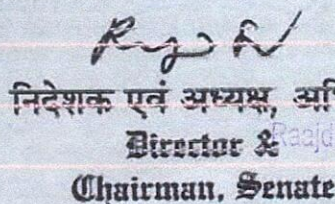 निदेशक एवं अध्यक्ष, अि
Director &
Raajd
Chairman, Senate